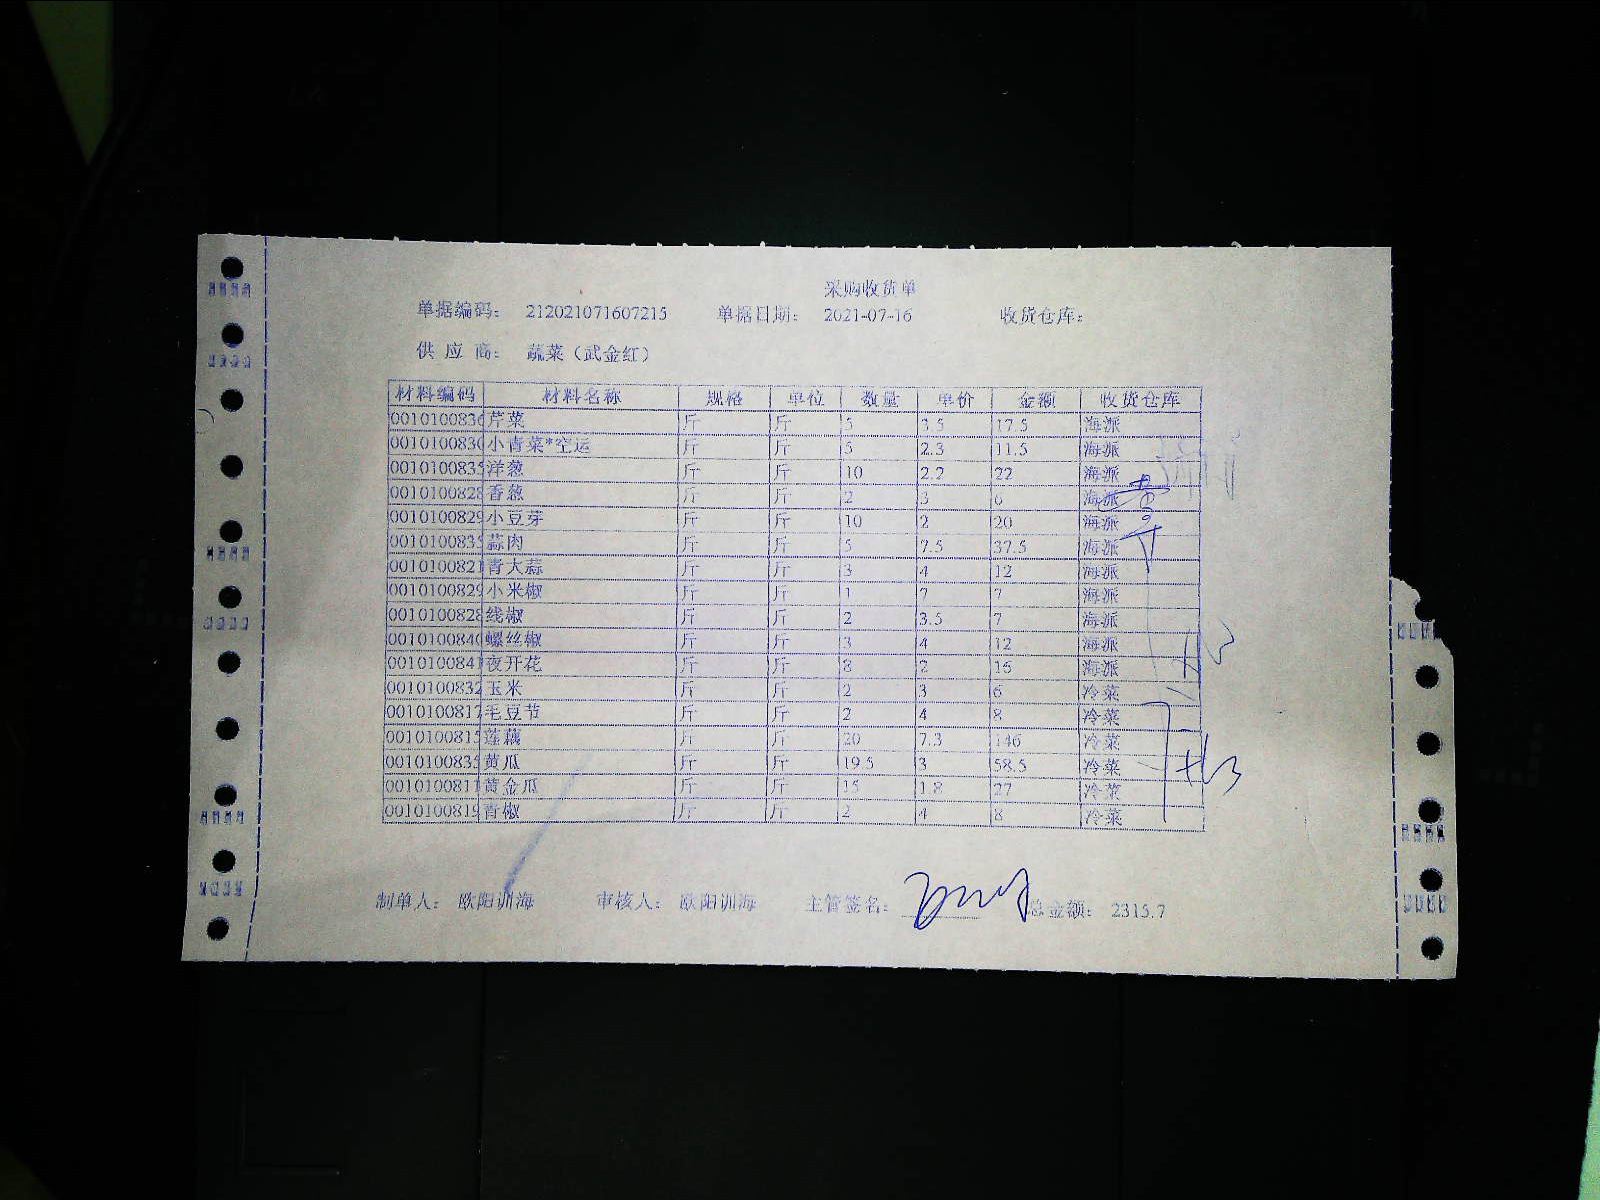 采购收货单
单据编码： 212021071607215 单据日期： 2021-07-16 收货仓库：
供 应 商： 蔬菜（武金红）
材料编码 材料名称 规格 单位 数量 单价 金额 收货仓库
0010100836 芹菜 斤 斤 5 3.5 17.5 海派
001010083 小青菜*空运 斤 斤 5 2.3 11.5 海派
001010083 洋葱 斤 斤 10 2.2 22 海派
0010100828 香葱 斤 斤 2 3 6 海派
0010100829 小豆芽 斤 斤 10 2 20 海派
001010083 蒜肉 斤 斤 5 7.5 37.5 海派
0010100821 青大蒜 斤 斤 3 4 12 海派
0010100829 小米椒 斤 斤 1 7 7 海派
0010100828 线椒 斤 斤 2 3.5 7 海派
001010084 螺丝椒 斤 斤 3 4 12 海派
0010100841 夜开花 斤 斤 8 2 海派
0010100832 玉米 斤 斤 2 3 6 冷菜
0010100817 毛豆节 斤 斤 2 4 8 冷菜
0010100815 莲藕 斤 斤 20 7.3 146 冷菜
001010083 黄瓜 斤 斤 19.5 3 58.5 冷菜
0010100811 黄金瓜 斤 斤 15 1.8 27 冷菜
0010100819 青椒 斤 斤 2 4 8 冷菜
制单人： 欧阳训海 审核人： 欧阳训海 主管签名： 总金额： 2315.7